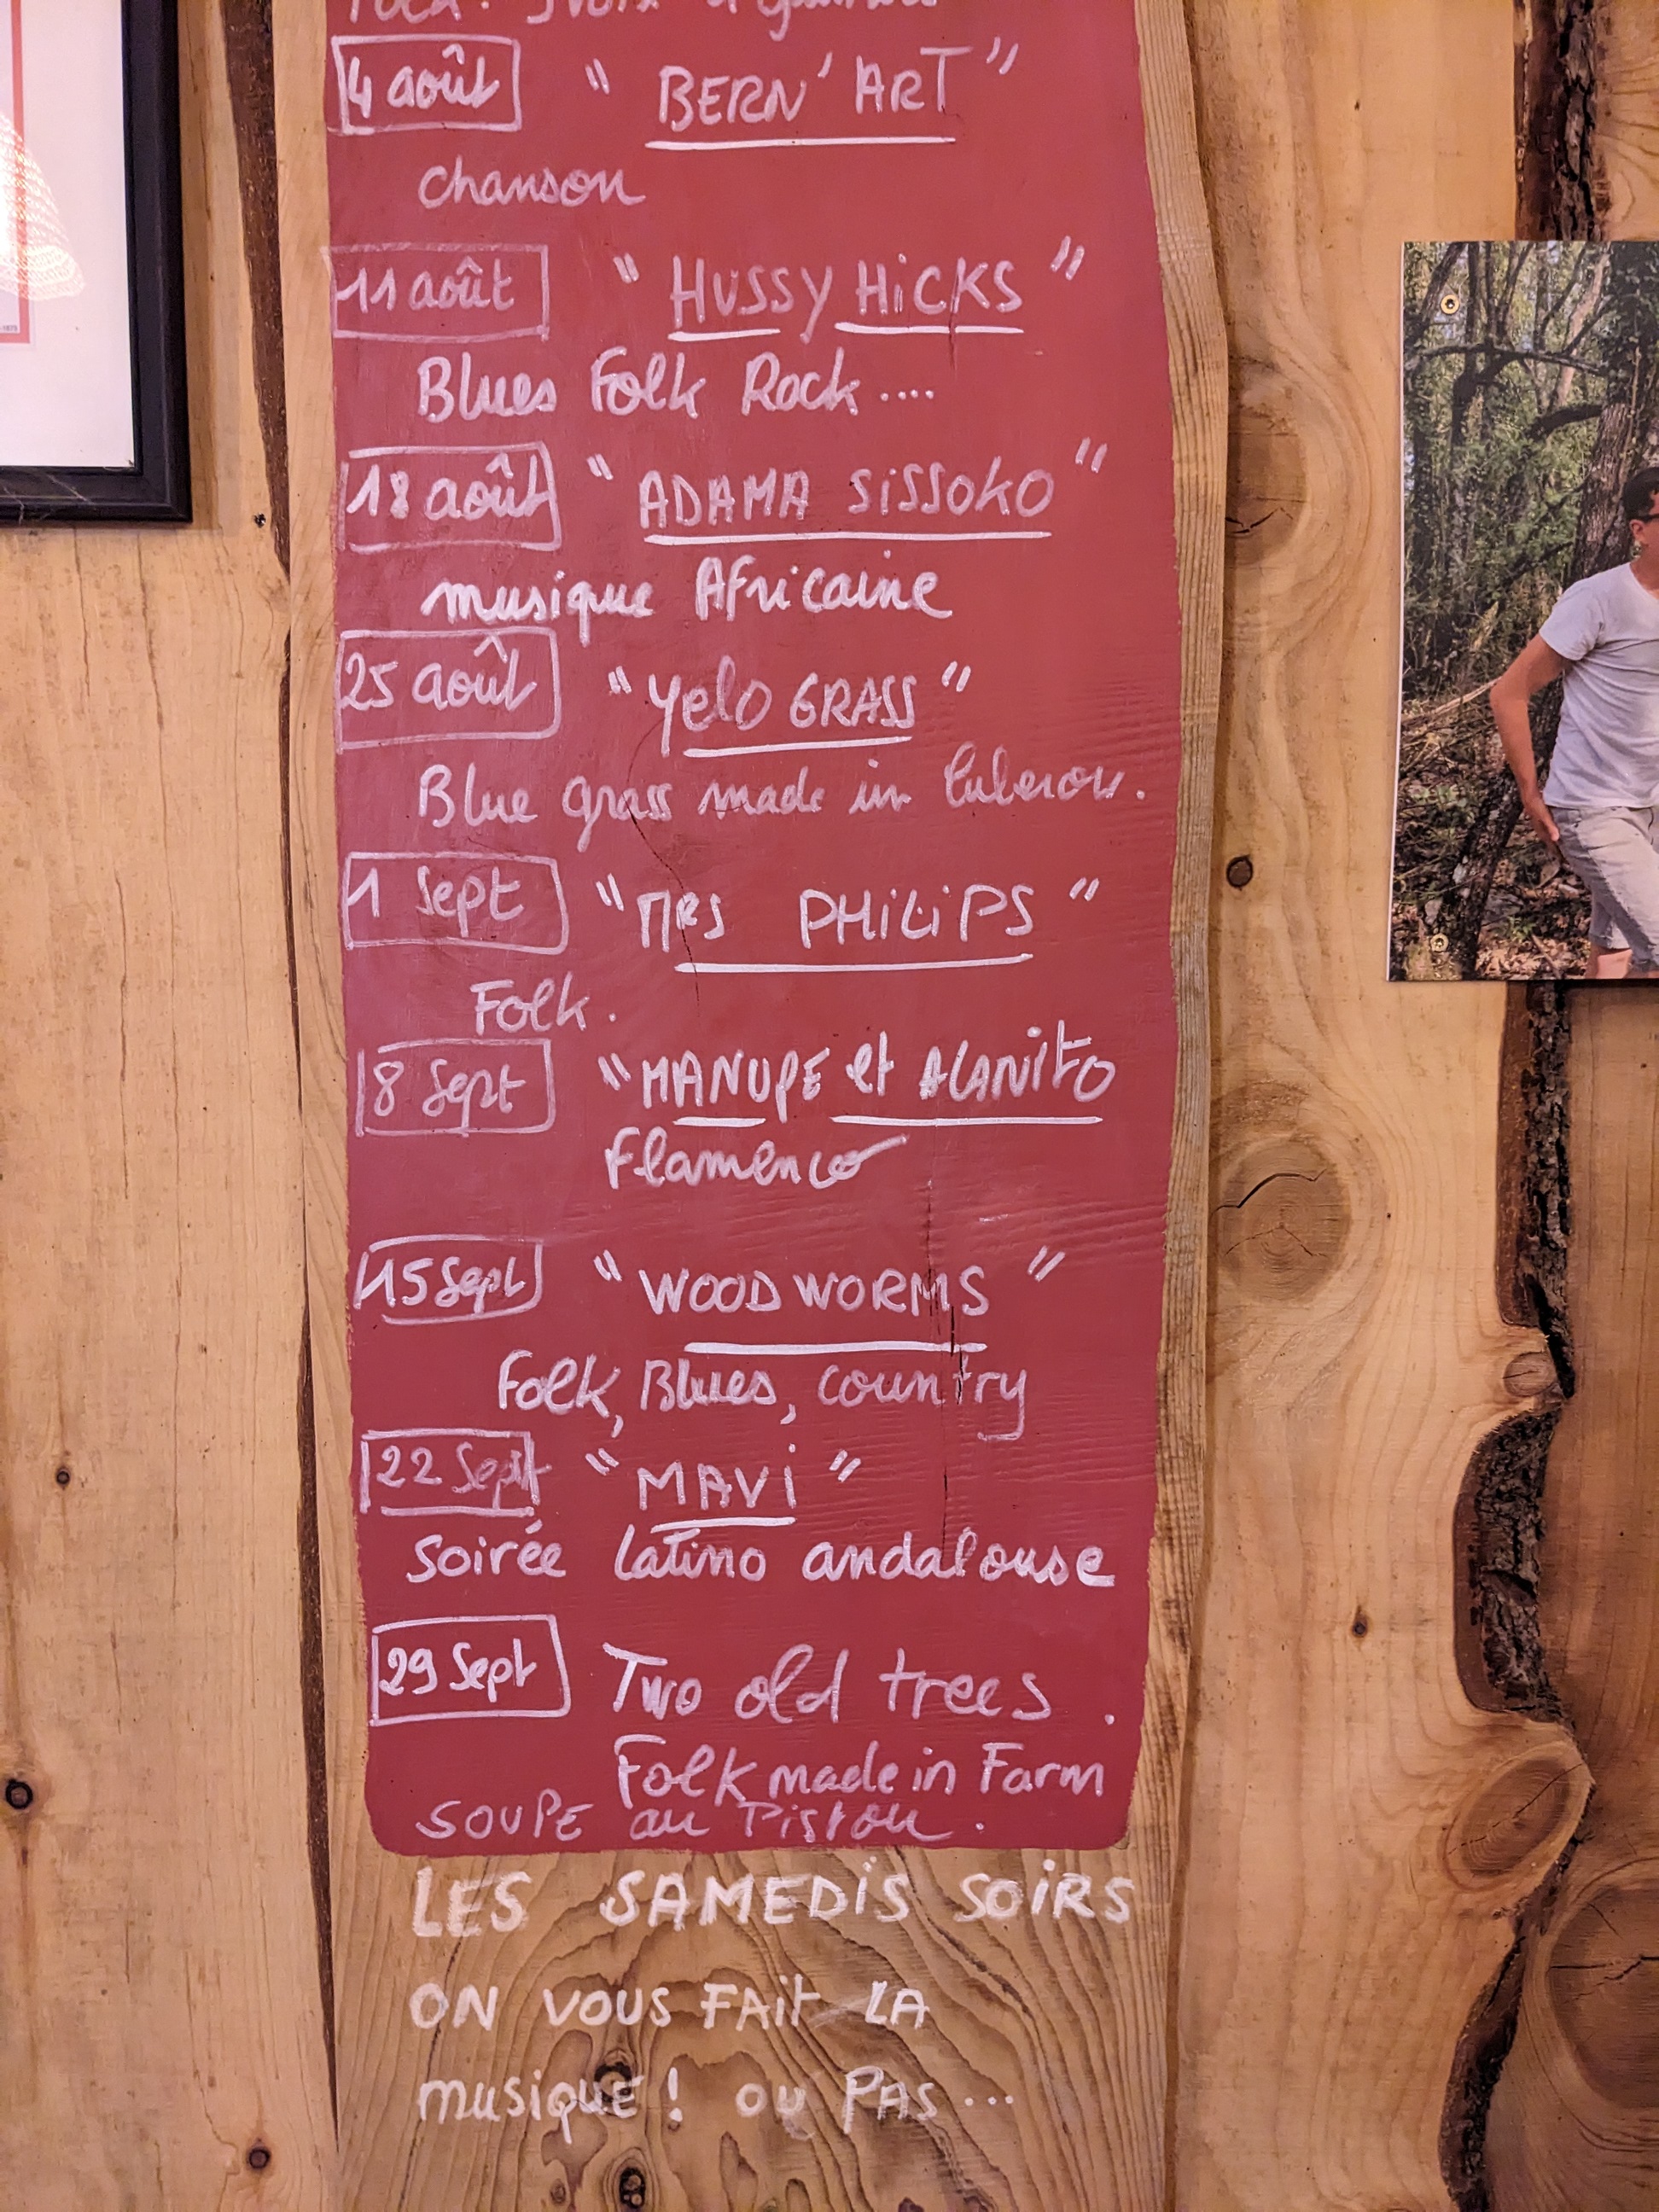 4 août " BERN' ART "
chanson
11 août " HUSSY HiCKS "
Blues Folk Rock ....
18 août " ADAMA SiSSOKO "
musique Africaine
25 août " Yelo GRASS "
Blue grass made in luberon.
1 Sept " MRS PHILIPS "
Folk.
8 Sept " MANUPE et ALANiTO
Flamenco
15 Sept " WOOD WORMS "
Folk, Blues, country
22 Sept " MAVi "
soirée latino andalouse
29 Sept Two old trees.
Folk made in Farm
SOUPE au Pistou.
LES SAMEDiS SOiRS
ON VOUS FAit LA
musiquE! ou PAS ...